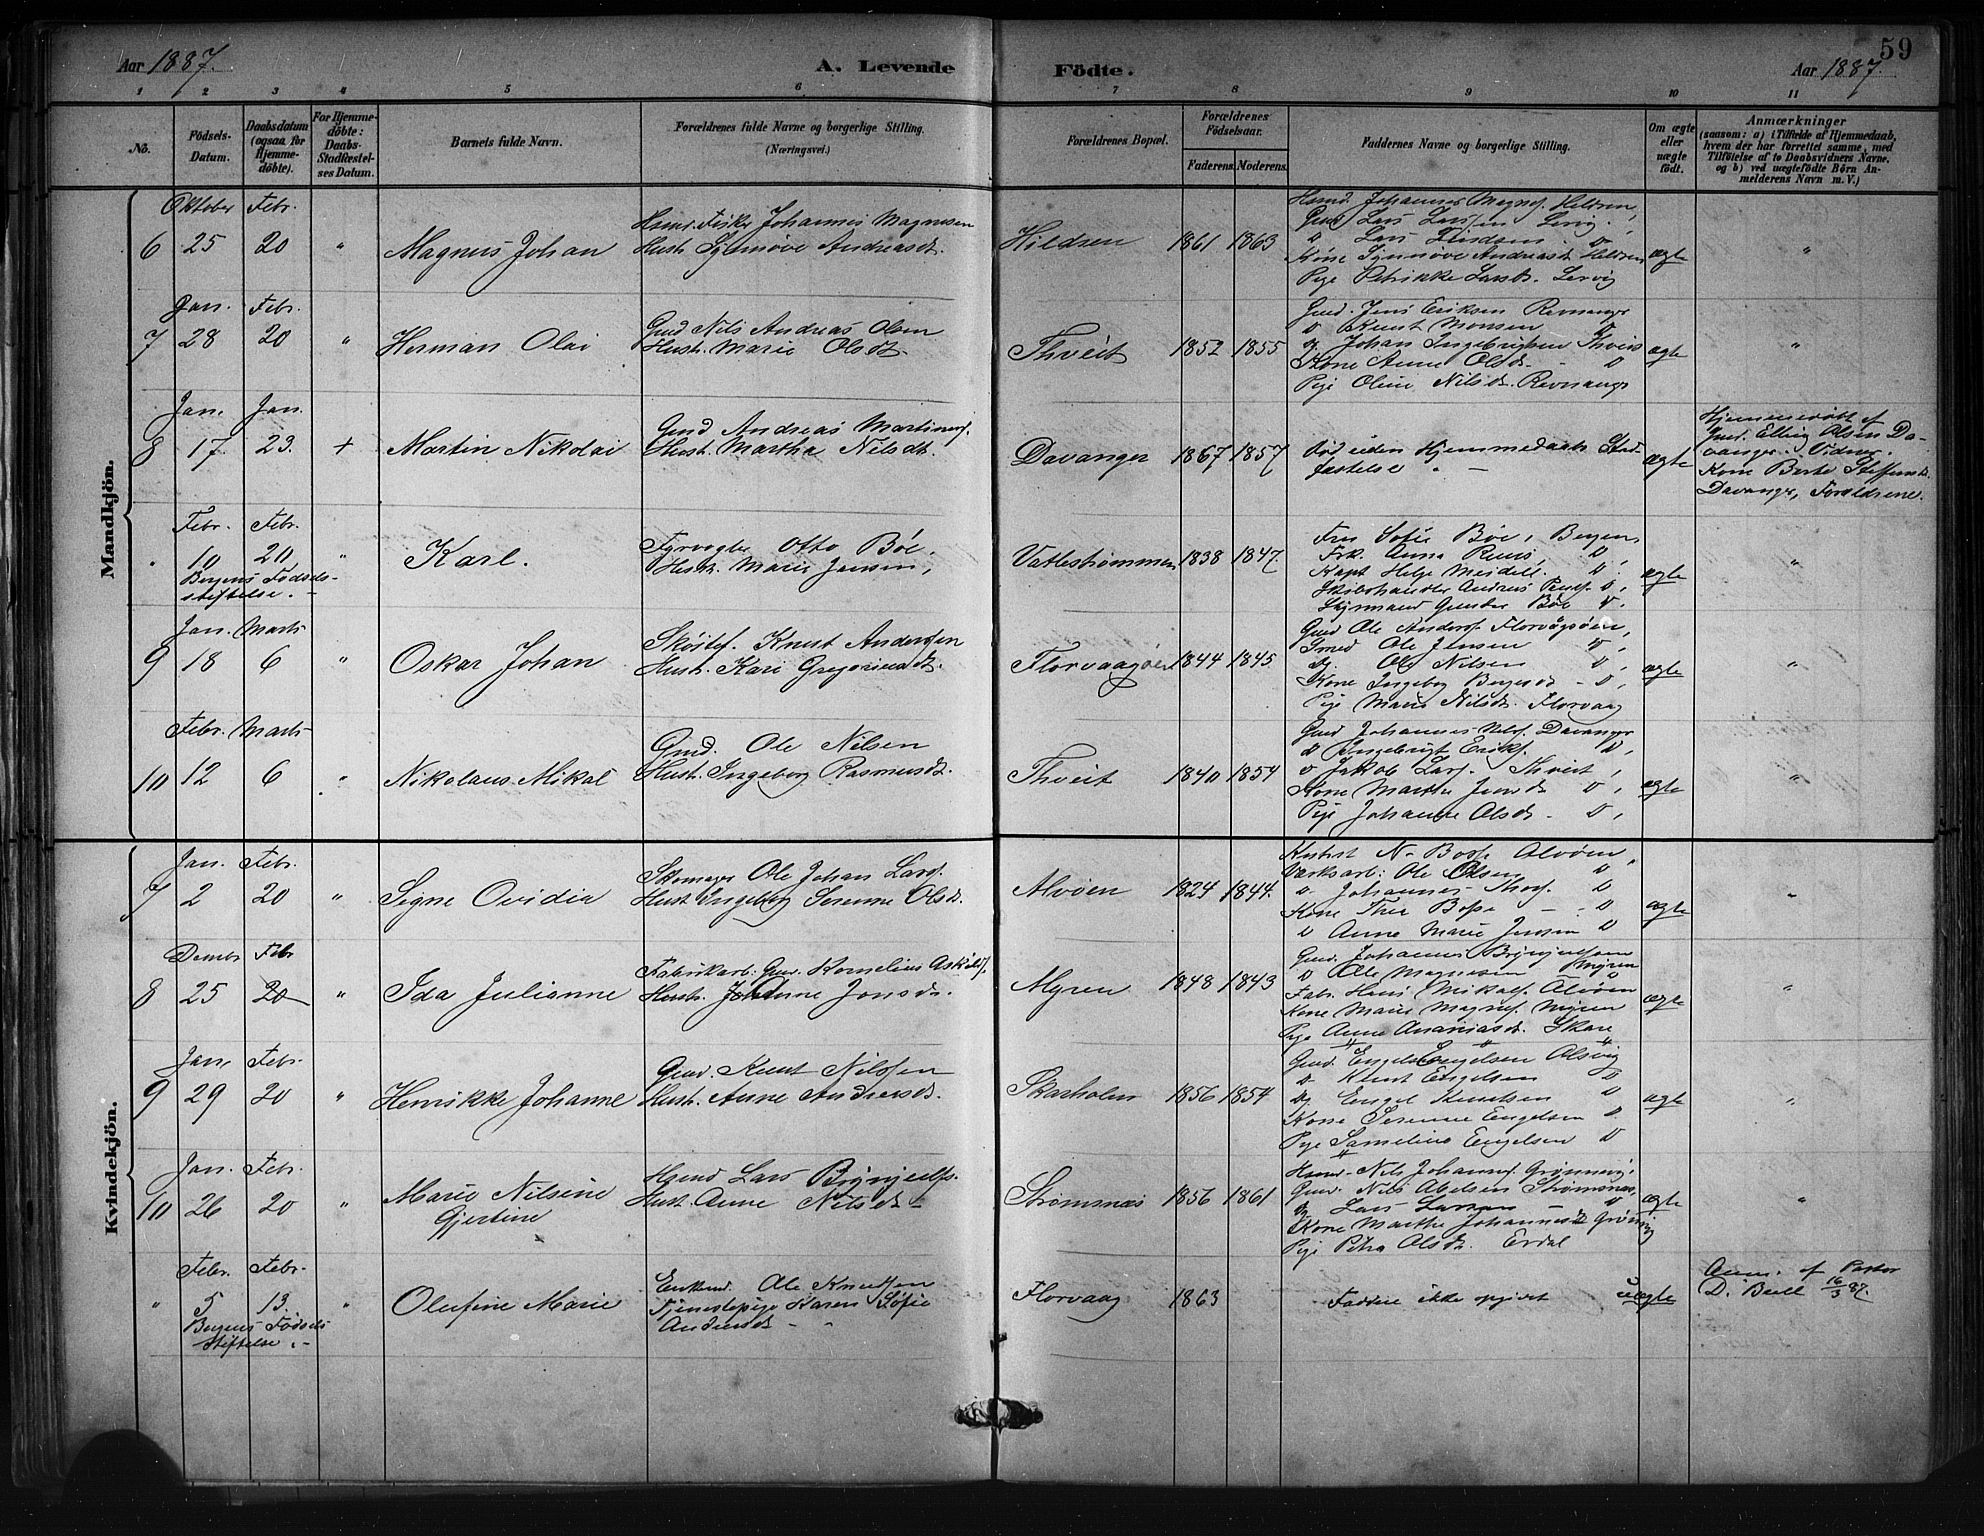 59
Aar 1887. A. Levende Födte. Aar 1887.
1 2 3 4 5 6 7 8 9 10 11
No.
Födsels-Datum.
Daabsdatum (ogsaa for Hjemme-döbte).
For Hjemme-döbte: Daabs-Stadfæstel-ses Datum.
Barnets fulde Navn.
Forældrenes fulde Navne og borgerlige Stilling.
(Næringsvei.)
Forældrenes Bopæl.
Forældrenes Födselsaar.
Faderens. Moderens.
Faddernes Navne og borgerlige Stilling.
Om ægte eller uægte födt.
Anmærkninger
(saasom: a) i Tilfælde af Hjemmedaab, hvem der har forrettet samme, med Tilföielse af to Daabsvidners Navne, og b) ved uægtefödte Börn An-melderens Navn m. V.)
Mandkjön.
Oktober Febr.
6 25 20 " Magnus Johan
Husm. Fisker Johannes Magnesen
Hust. Synnøve Andreasdt.
Hildren 1861 1863
Husmd. Johannes Magns. Hildren,
Gmd. Lars Larsen Lervig,
D Lars
Kone Synnøve Andreasdt Hildren
Pige Petrikke Larsdt. Lervig
ægte "
Jan. Febr.
7 28 20 " Herman Olai
Gmd Nils Andreas Olsen
Hust. Marie Olsdt.
Thveit 1852 1855
Gmd. Jens Eriksen Revnange
D Knut Monsen D
Johan Ingebrigtsen Thveit
Kone Anne Olsdt. - D
Pige Oline Nilsdt. Revnange
ægte "
Jan. Jan.
8 17 23. + Martin Nikolai
Gmd Andreas Martinus.
Hust. Martha Nilsdt.
Davanger 1867 1857
Død uden Hjemmedaabs Stad-
fæstelse " -
ægte
Hjemmedøbt af
Gmd. Elling Olsen Da-
vanger. Vidner.
Kone Berte Steffensdt.
Davanger, Forældrene.
Febr. Febr.
10 20 " Karl.
Bergens Fødsels-
stiftelse. -
Fyrvogter Otto Bøe,
Hust. Marie Jensen,
Vatlestrømmen 1838 1847.
Fru Sofie Bøe, Bergen,
Frk. Anna D,
Kapt Helje Meidell. D.
Skibshandler Andreas D,
Styrmand Gunder Bøe D.
ægte "
Jan. Marts
9 18 6 " Oskar Johan
Skøitef. Knut Andersen
Hust. Kari Gregoriusdt.
Florvaagøen 1844 1845
Gmd Ole Anders. Florvågøen,
Smed Ole Jensen D,
Ole Nilsen D,
Kone Ingeborg - D,
Pige Marie Nilsdt. Florvaag
ægte "
Febr. Marts
10 12 6 " Nikolaus Mikal
Gmd. Ole Nilsen
Hust. Ingeborg Rasmusdt.
Thveit 1840 1854
Gmd Johannes Nils. Davanger
D Ingebrigt Eriks. D,
D Jakob Lars. Thveit,
Kone Marthe D,
Pige Johanne Olsdt - D,
ægte "
Kvindekjön.
Jan. Febr.
7 2 20 " Signe Ovidia
Skomager Ole Johan Lars.
Hust. Ingeborg Serenne Olsdt.
Alvøen 1824 1844.
N. Alvøen,
Værksarb: Ole Olsen D
D Johannes Thors. D
Kone Thea - D
D Anne Marie Jensen D
ægte "
Decmbr Febr
8 25 20 " Ida Julianne
Fabrikarb. Gmd. Kornelius Askilds.
Hustr. Johanne Jonsdt.
Myren 1848 1843
Gmd. Johannes Brynjulfsen
D Ole Magnesen Myren
Fab. Hans Mikals. Alvøen
Kone Marie Magns. Myren
Pige Anne Ananiasdt. Skare
ægte "
Jan. Febr.
9 29 20 " Henrikke Johanne
Gmd. Knut Nilssen
Hust. Anne Andersdt.
Skarholm 1856 1854
Gmd. Engel Engelsen Alsvig
D Knut Engelsen D
Engel Knutsen D
Kone Serenne Engelsen D
Pige Sameline Engelsen D
ægte "
Jan. Febr.
10 26 20 " Marie Nilsine
Gjertine
Husmd Lars Brynjulfs.
Hust. Anne Nilsdt -
Strømsnæs 1856 1861
Husmd. Nils Johanns. Grønnevig,
Gmd. Nils Abelsen Strømsnæs,
Lars Larsen - D
Kone Marthe Johannesdt Grønnevig
Pige Petra Olsdt. Erdal
ægte "
Febr. Febr.
" 5 13. " Olufine Marie
Bergens Fødsels
Stiftelse. -
Enkemd Ole Knudsen
Tjenestepige Karen Sofie
Andersdt - "
Florvaag 1863
Faddere ikke opgivet
uægte
Anm. af Pastor
D. Bull 16/3 87.